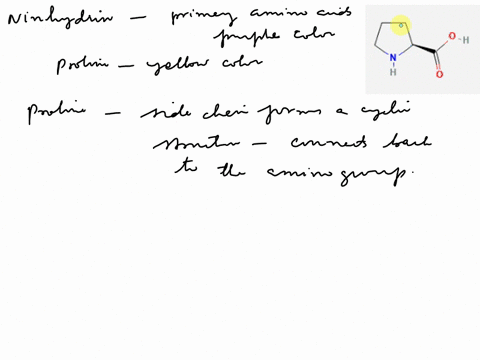 Ninhydrin — primary amino acids
purple color
Proline — yellow color
Proline — side chain forms a cyclic
structure — connects back
to the amino group.
O H
N
H
O